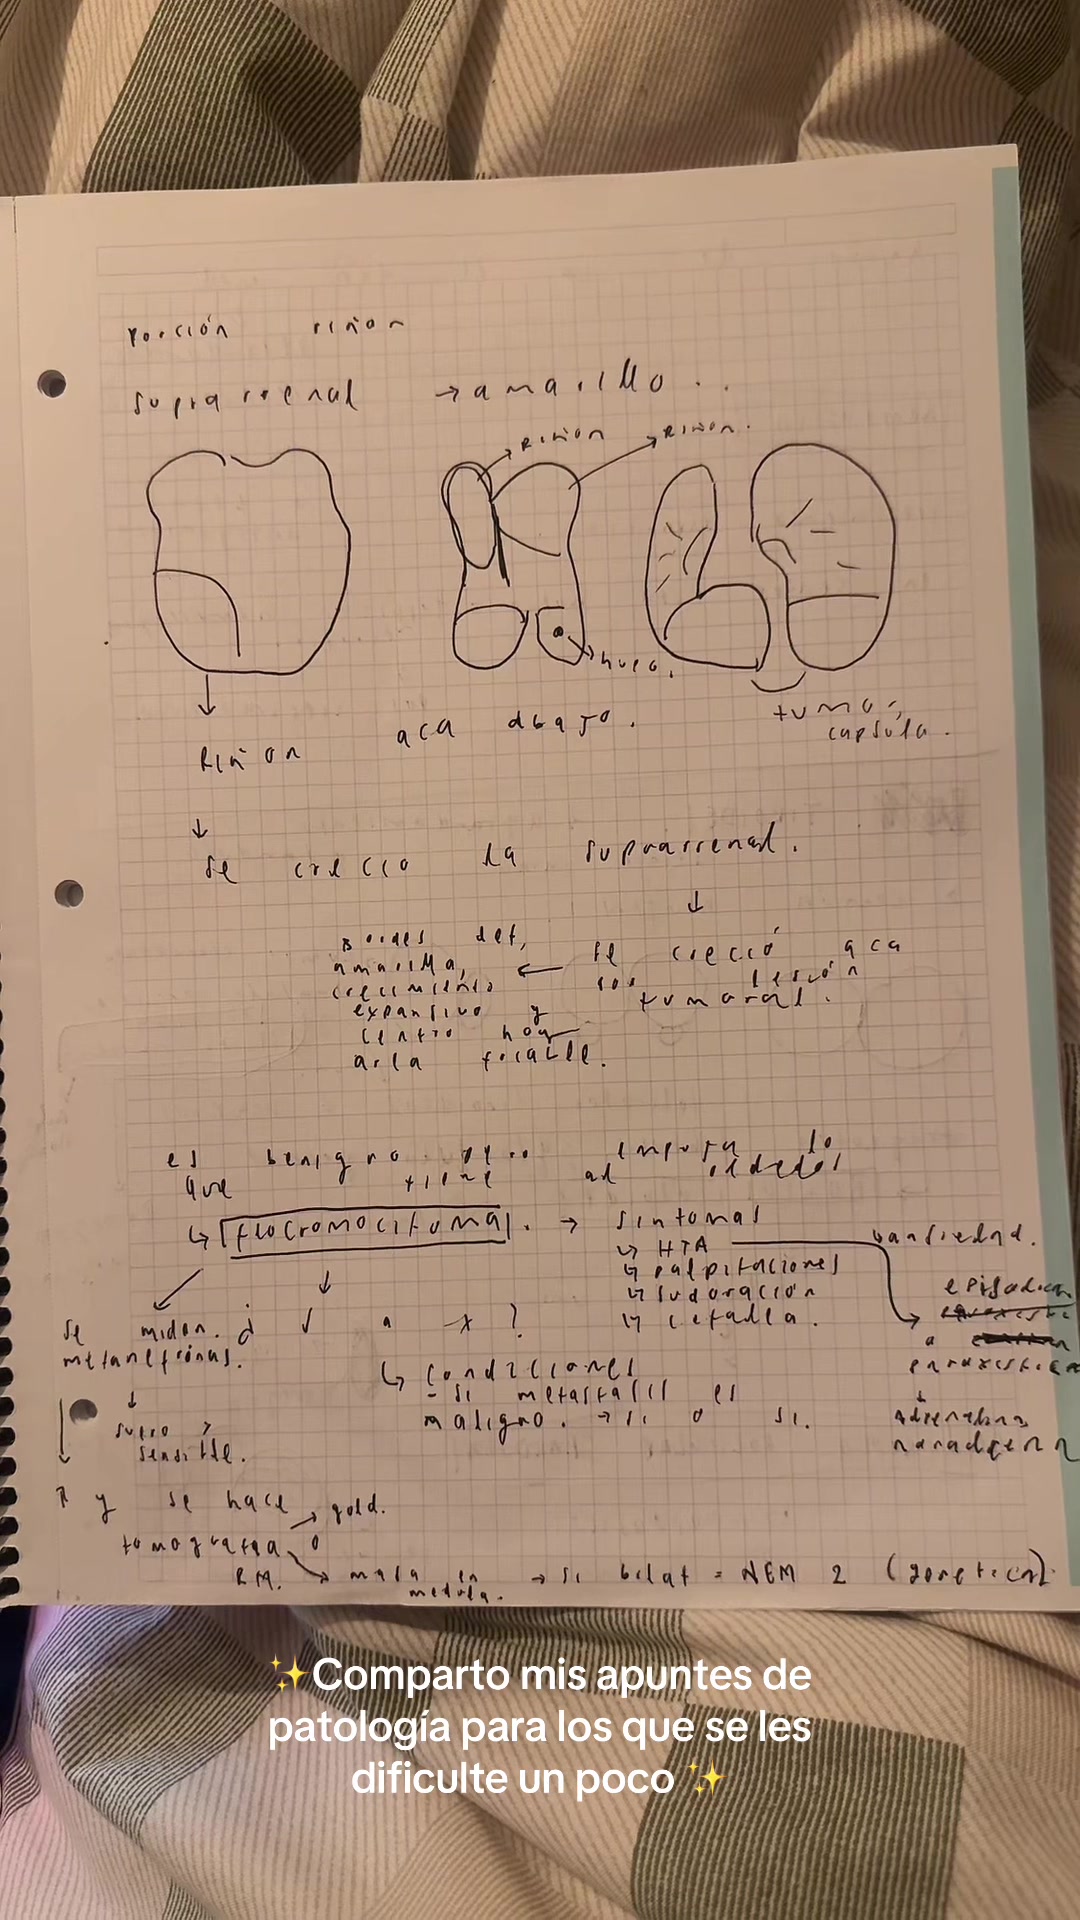 porción riñon
suprarrenal → amarillo . .
Riñon
Riñon.
hueco.
Riñon
aca abajo.
tumor,
capsula.
↓
se creció la suprarrenal.
↓
se creció aca
por lesión
tumoral.
←
Bordes def,
amarilla,
crecimiento
expansivo y
centro hay
area
es benigno pero empuja lo
que tiene al rededor
↳ feocromocitoma. → sintomas
↳ HTA
↳ palpitaciones
↳ sudoración
↳ cefalea.
ansiedad.
episodica
o
paroxistica
↓
Adrenalina
noradren
Se miden
metanefrinas.
↓
suero >
sensible.
¿ ↓ a x ?
↳ Condiciones
- si metastasis es
maligno. → si o si.
y se hace
tomografia → gold.
o
RM. → masa en
medula. → si bilat = NEM 2 (genetica)
✨Comparto mis apuntes de
patología para los que se les
dificulte un poco ✨